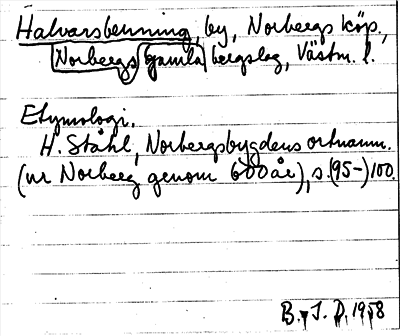 Halvarsbenning, by, Norbergs köp.,
Norbergs gamla bergslag, Västm. l.
Etymologi.
H. Ståhl, Norbergsbygdens ortnamn.
(ur Norberg genom 600 år), s. (95-)100.
B. J. 1958